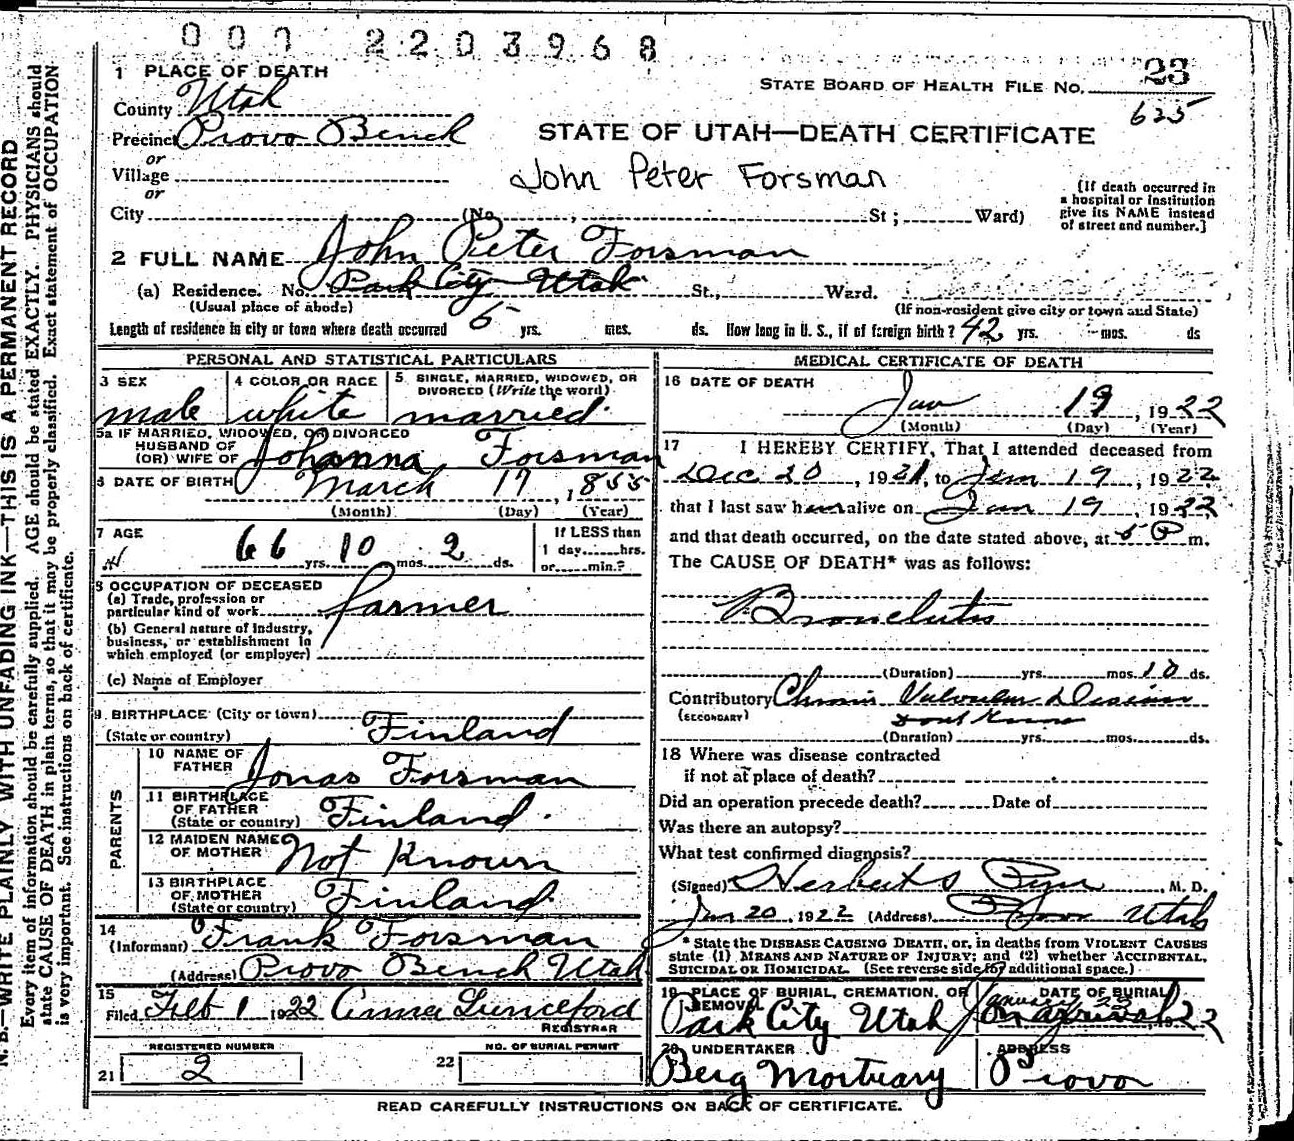 000 2203968
1 PLACE OF DEATH
STATE BOARD OF HEALTH FILE NO. 23
County Utah
625
Precinct Provo Bench
STATE OF UTAH—DEATH CERTIFICATE
or
Village
John Peter Forsman
or
City (No. , St ; Ward)
[If death occurred in
a hospital or institution
give its NAME instead
of street and number.]
2 FULL NAME John Peter Forsman
(a) Residence. No. Park City Utah St., Ward.
(Usual place of abode) (If non-resident give city or town and State)
Length of residence in city or town where death occurred 5 yrs. mos. ds. How long in U. S., if of foreign birth? 42 yrs. mos. ds
PERSONAL AND STATISTICAL PARTICULARS
3 SEX 4 COLOR OR RACE 5 SINGLE, MARRIED, WIDOWED, OR
DIVORCED (Write the word)
male white married.
5a IF MARRIED, WIDOWED, OR DIVORCED
HUSBAND OF
(OR) WIFE OF Johanna Forsman
6 DATE OF BIRTH March 17, 1855
(Month) (Day) (Year)
7 AGE 66 yrs. 10 mos. 2 ds.
If LESS than
1 day......hrs.
or......min.?
8 OCCUPATION OF DECEASED
(a) Trade, profession or
particular kind of work farmer
(b) General nature of Industry,
business, or establishment in
which employed (or employer)
(c) Name of Employer
9 BIRTHPLACE (City or town)
(State or country) Finland
PARENTS
10 NAME OF
FATHER Jonas Forsman
11 BIRTHPLACE
OF FATHER
(State or country) Finland.
12 MAIDEN NAME
OF MOTHER Not Known
13 BIRTHPLACE
OF MOTHER
(State or country) Finland.
14
(Informant) Frank Forsman
(Address) Provo Bench Utah
15
Filed Feb 1 1922 Anna Lunceford
REGISTRAR
REGISTERED NUMBER NO. OF BURIAL PERMIT
21 2 22
MEDICAL CERTIFICATE OF DEATH
16 DATE OF DEATH
Jan 19, 1922
(Month) (Day) (Year)
17 I HEREBY CERTIFY, That I attended deceased from
Dec 20, 1921, to Jan 19, 1922
that I last saw him alive on Jan 19 1922
and that death occurred, on the date stated above, at 5 P m.
The CAUSE OF DEATH* was as follows:
Bronchitis
(Duration) yrs. mos. 10 ds.
Contributory Chronic Valvular Disease
(SECONDARY) Dont Know
(Duration) yrs. mos. ds.
18 Where was disease contracted
if not at place of death?
Did an operation precede death? Date of
Was there an autopsy?
What test confirmed diagnosis?
(Signed) Herbert S Pyne, M. D.
Jan 20, 1922 (Address) Provo Utah
* State the DISEASE CAUSING DEATH, or, in deaths from VIOLENT CAUSES
state (1) MEANS AND NATURE OF INJURY; and (2) whether ACCIDENTAL,
SUICIDAL OR HOMICIDAL. (See reverse side for additional space.)
19 PLACE OF BURIAL, CREMATION, OR
REMOVAL
DATE OF BURIAL
January 23
Park City Utah On arrival 1922
20 UNDERTAKER ADDRESS
Berg Mortuary Provo
READ CAREFULLY INSTRUCTIONS ON BACK OF CERTIFICATE.
N. B.—WRITE PLAINLY WITH UNFADING INK—THIS IS A PERMANENT RECORD
Every item of information should be carefully supplied. AGE should be stated EXACTLY. PHYSICIANS should
state CAUSE OF DEATH in plain terms, so that it may be properly classified. Exact statement of OCCUPATION
is very important. See instructions on back of certificate.